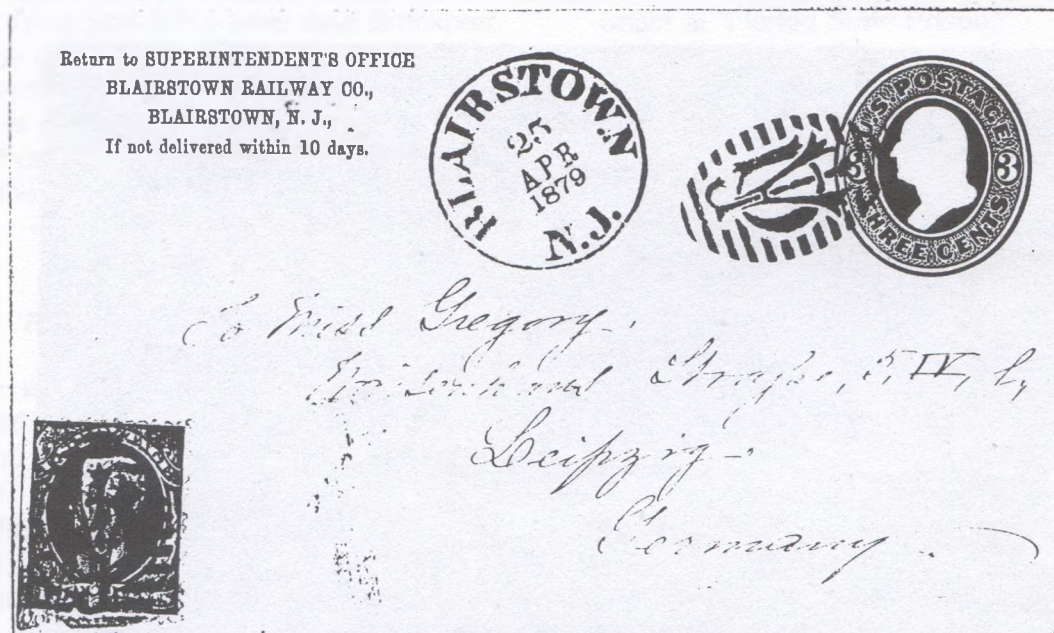 Return to SUPERINTENDENT'S OFFICE
BLAIRSTOWN RAILWAY CO.,
BLAIRSTOWN, N. J.,
If not delivered within 10 days.
BLAIRSTOWN
25
APR
1879
N.J.
U.S. POSTAGE
3 3
THREE CENTS
To Miss Gregory.
Strasse, 5, IV, l,
Leipzig.
Germany.